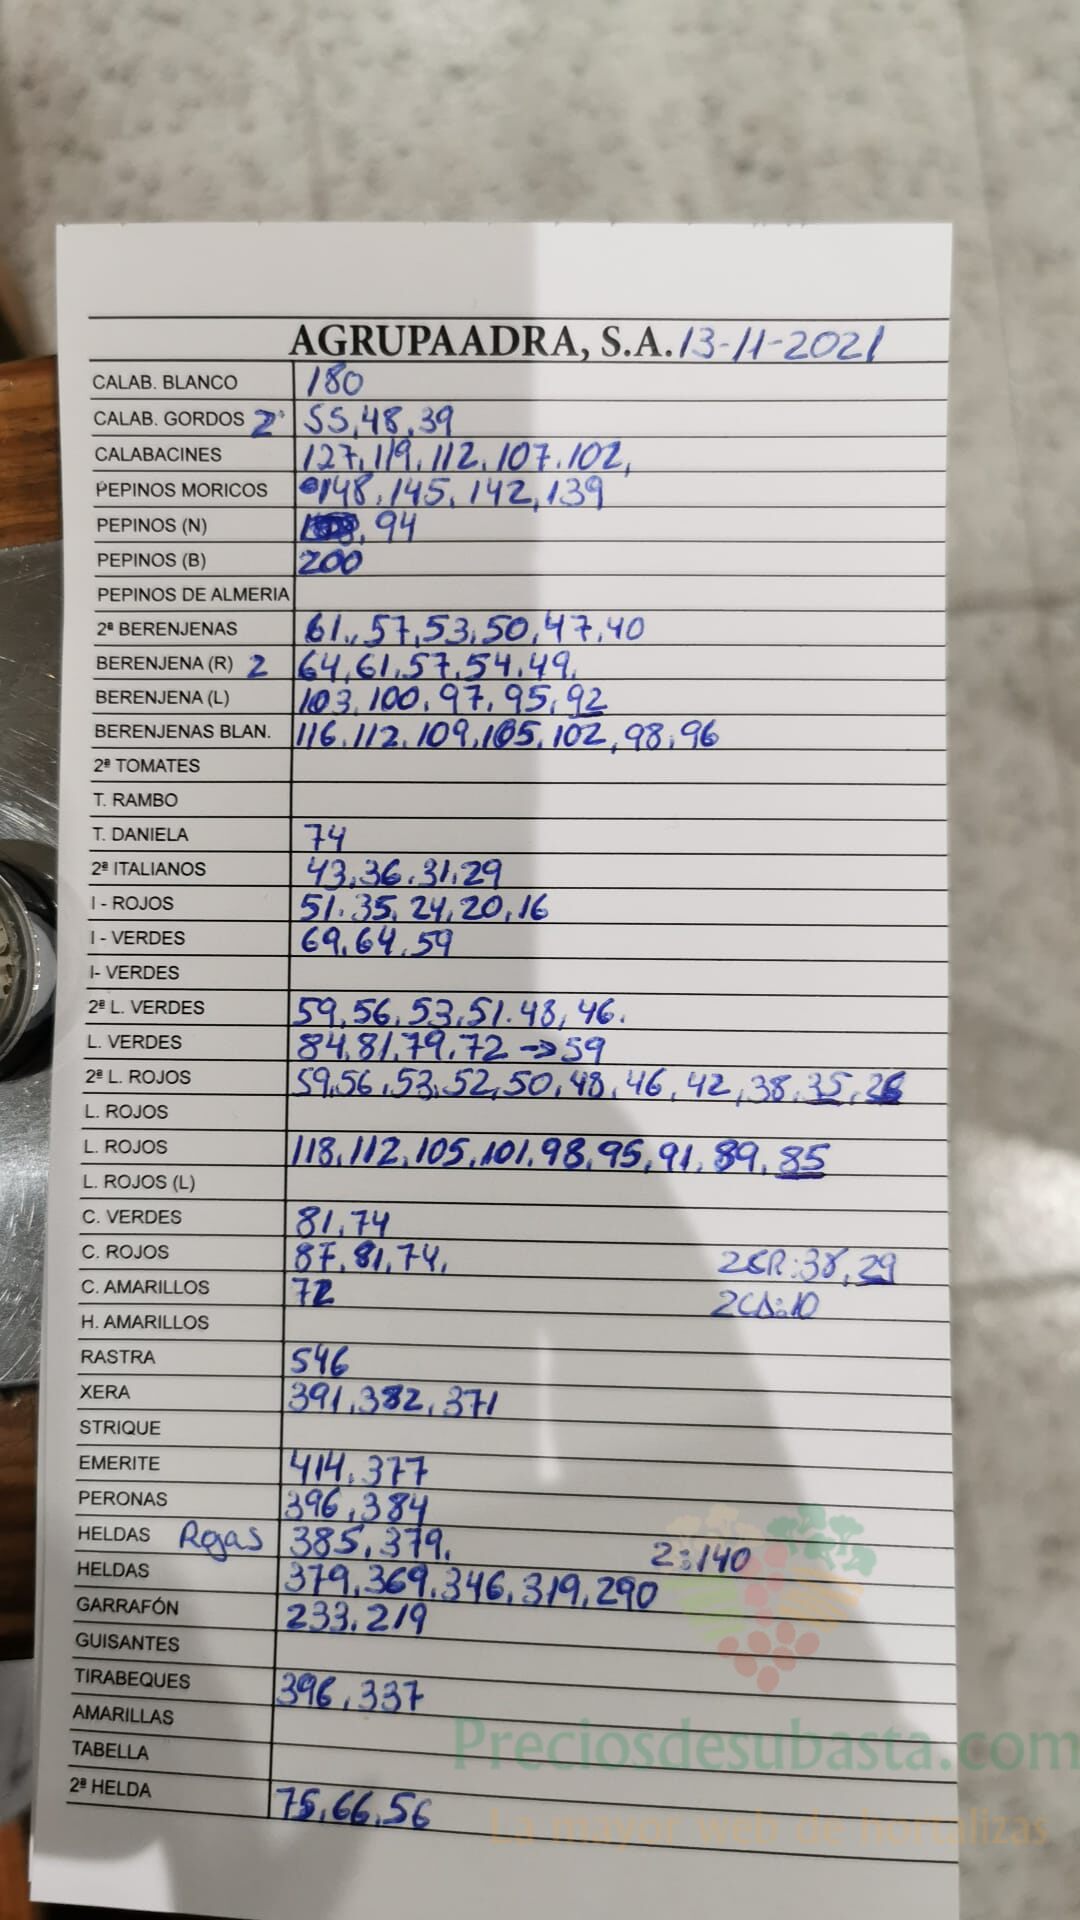 AGRUPAADRA, S.A. 13-11-2021
CALAB. BLANCO 180
CALAB. GORDOS 2ª 55,48,39
CALABACINES 127,119,112,107,102,
PEPINOS MORICOS 148,145,142,139
PEPINOS (N) , 94
PEPINOS (B) 200
PEPINOS DE ALMERIA
2ª BERENJENAS 61,57,53,50,47,40
BERENJENA (R) 2 64,61,57,54,49,
BERENJENA (L) 103,100,97,95,92
BERENJENAS BLAN. 116,112,109,105,102,98,96
2ª TOMATES
T. RAMBO
T. DANIELA 74
2ª ITALIANOS 43,36,31,29
I - ROJOS 51,35,24,20,16
I - VERDES 69,64,59
I- VERDES
2ª L. VERDES 59,56,53,51,48,46.
L. VERDES 84,81,79,72 → 59
2ª L. ROJOS 59,56,53,52,50,48,46,42,38,35,
L. ROJOS
L. ROJOS 118,112,105,101,98,95,91,89,85
L. ROJOS (L)
C. VERDES 81,74
C. ROJOS 87,81,74, 2CR:38,29
C. AMARILLOS 72 2CA:10
H. AMARILLOS
RASTRA 546
XERA 391,382,371
STRIQUE
EMERITE 414,377
PERONAS 396,384
HELDAS Rojas 385,379, 2:140
HELDAS 379,369,346,319,290
GARRAFÓN 233,219
GUISANTES
TIRABEQUES 396,337
AMARILLAS
TABELLA
2ª HELDA 75,66,56
Preciosdesubasta.com
La mayor web de hortalizas